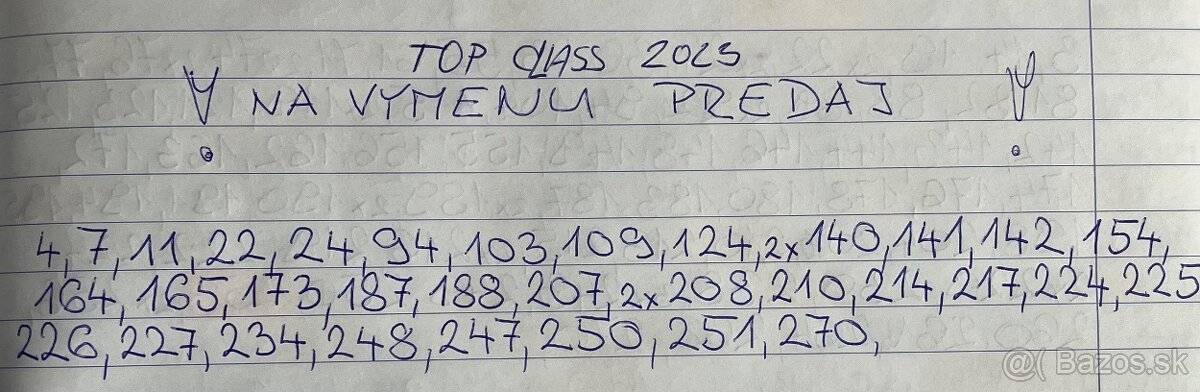 TOP CLASS 2023
! NA VYMENU PREDAJ !
4, 7, 11, 22, 24, 94, 103, 109, 124, 2x140, 141, 142, 154,
164, 165, 173, 187, 188, 207, 2x208, 210, 214, 217, 224, 225
226, 227, 234, 248, 247, 250, 251, 270,
@( Bazos.sk